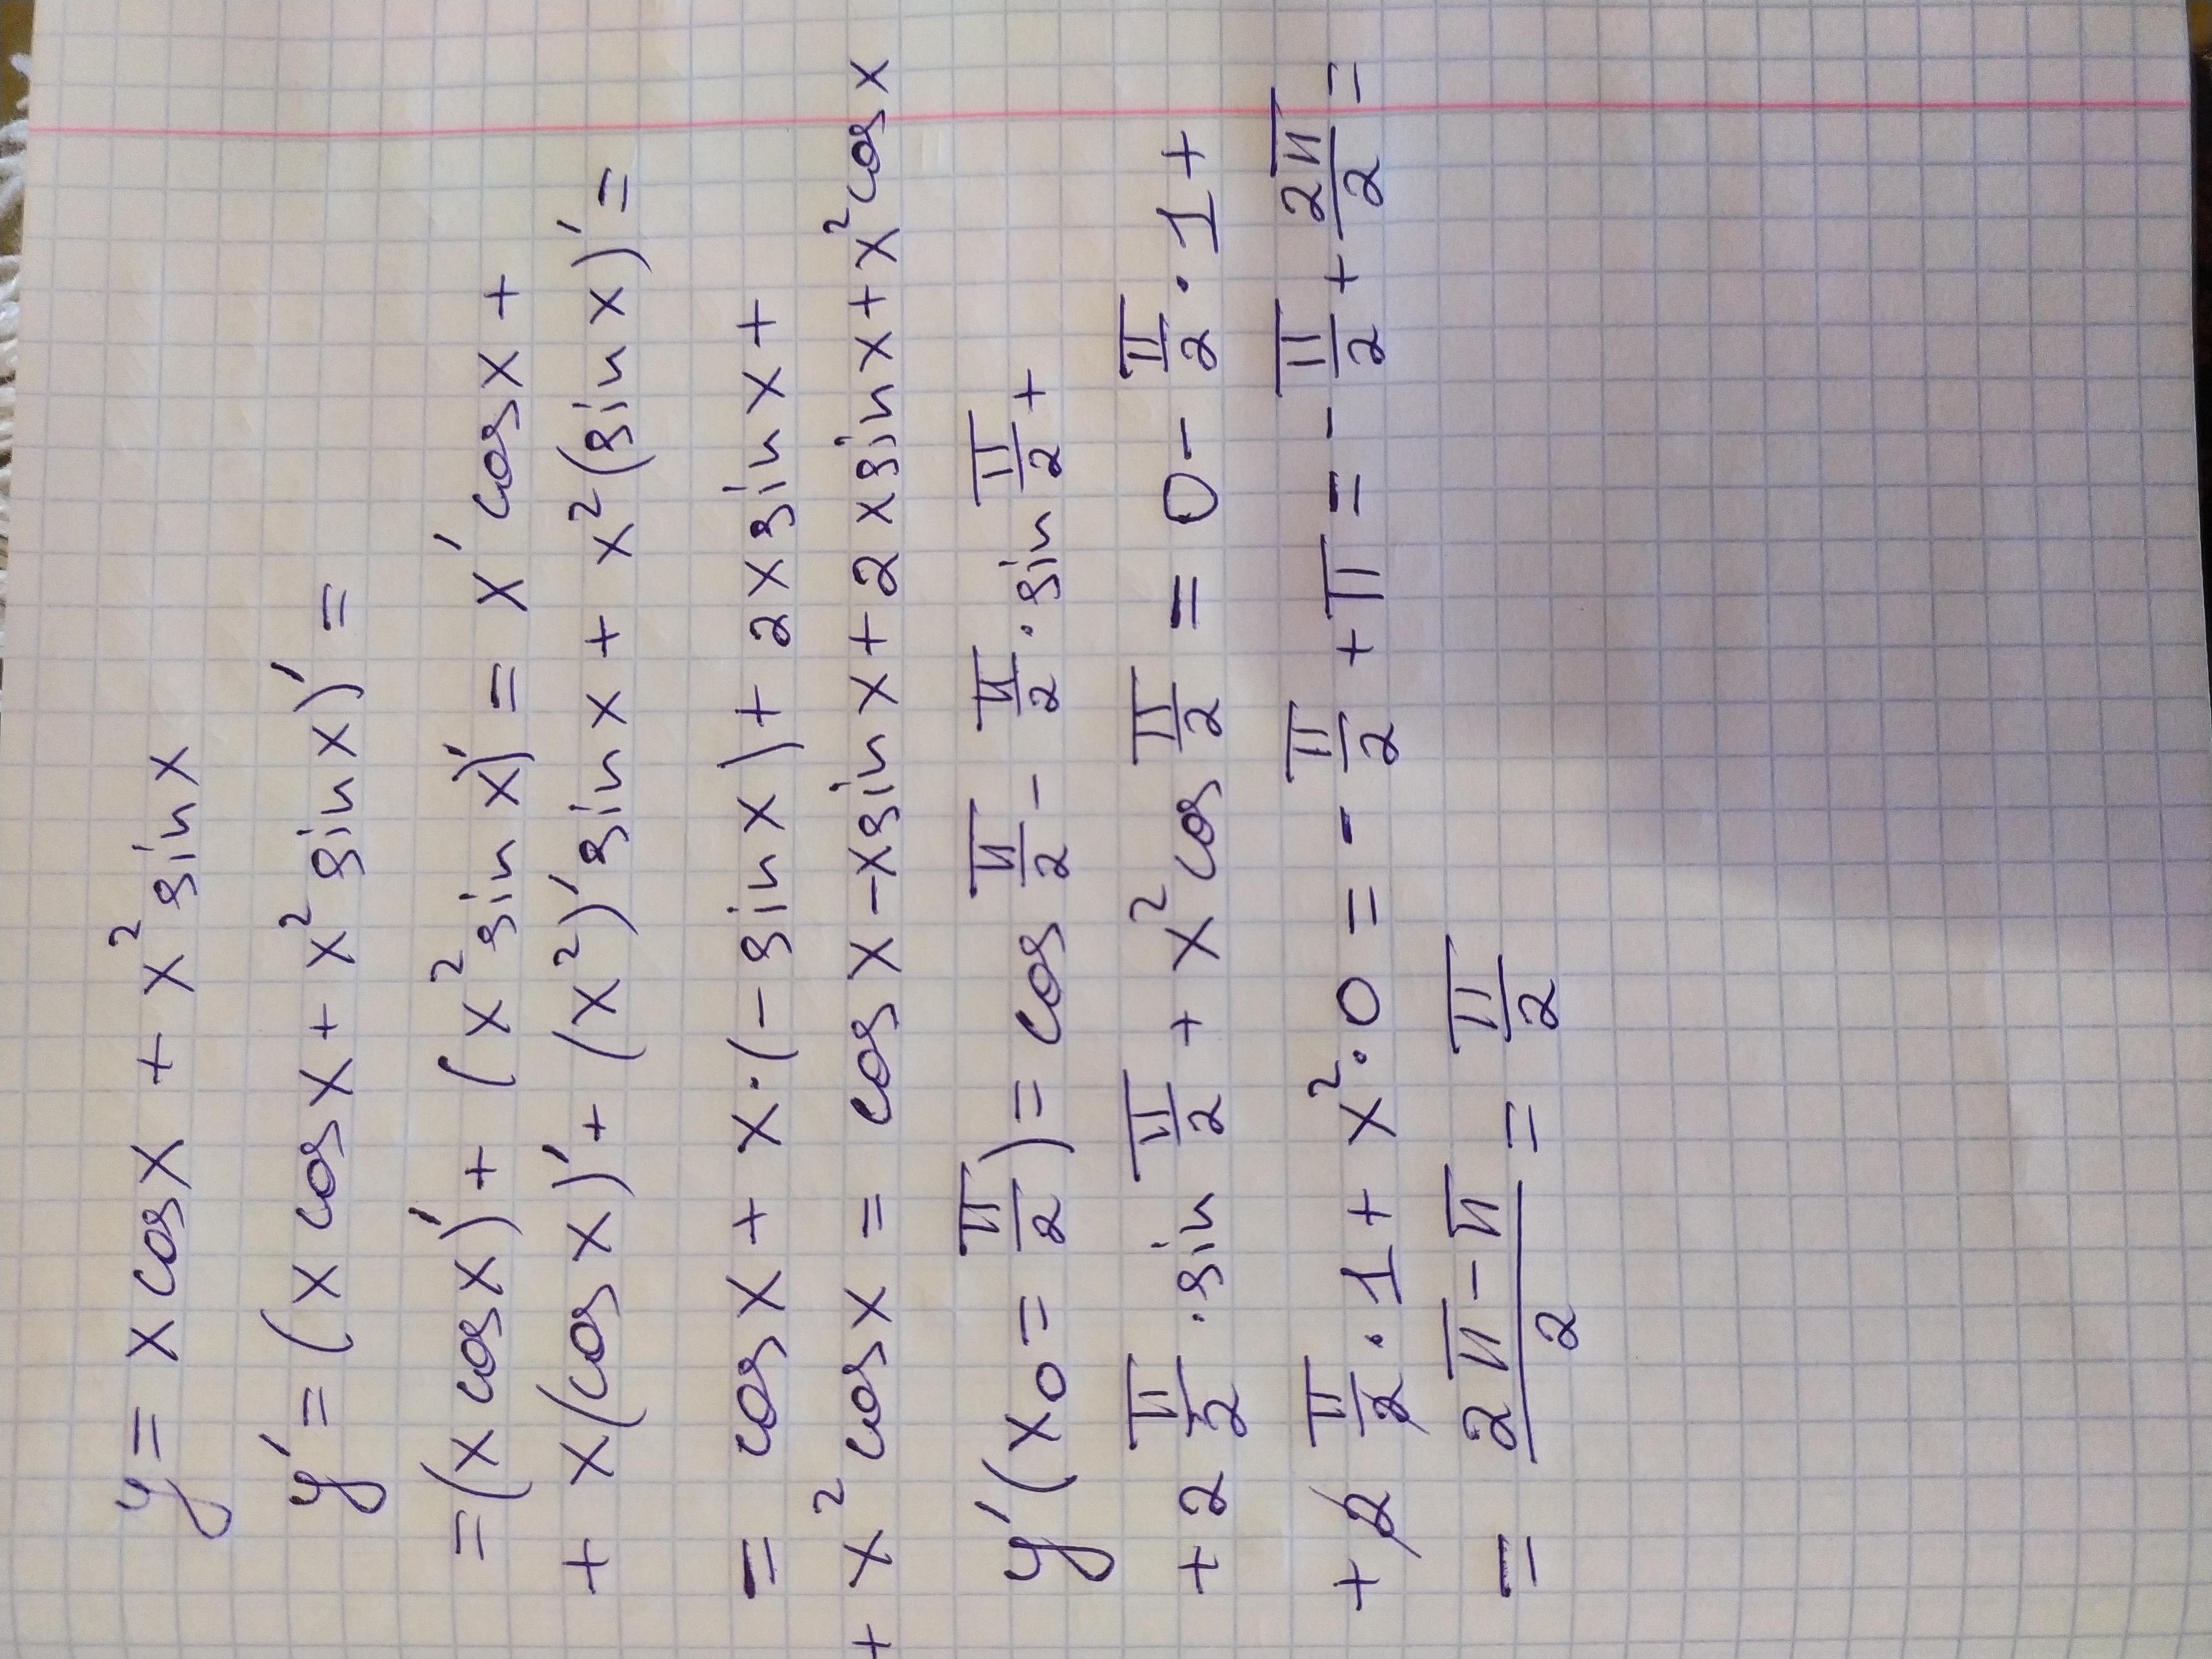 y = x cosx + x² sinx
y' = (x cosx + x² sinx)' =
= (x cosx)' + (x² sinx)' = x' cosx +
+ x(cosx)' + (x²)' sinx + x²(sinx)' =
= cosx + x·(-sinx) + 2x sinx +
+ x² cosx = cosx - x sinx + 2x sinx + x² cosx
y'(x₀ = π/2) = cos π/2 - π/2 · sin π/2 +
+ 2 π/2 · sin π/2 + x² cos π/2 = 0 - π/2 · 1 +
+ 2 π/2 · 1 + x² · 0 = - π/2 + π = - π/2 + 2π/2 =
= (2π - π)/2 = π/2